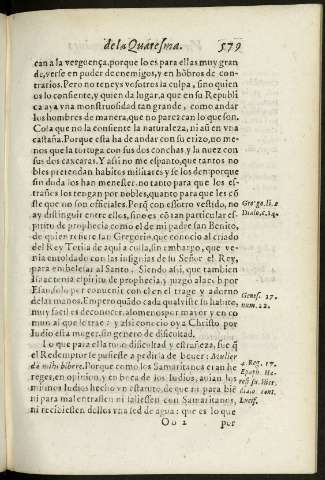 de la Quaresma. 579
can a la verguença, porque lo es para ellas muy gran
de, verse en puder de enemigos, y en hõbros de con-
trarios. Pero no teneys vosotros la culpa, sino quien
os lo consiente, y quien da lugar, a que en su Republi
ca aya vna monstruosidad tan grande, como andar
los hombres de manera, que no parezcan lo que son.
Cosa que no la consiente la naturaleza, ni aũ en vna
castaña. Porque esta ha de andar con su erizo, no me
nos que la tortuga con sus dos conchas, y la nuez con
sus dos caxcaras. Y assi no me espanto, que tantos no
bles pretendan habitos militares y se los den: porque
sin duda los han menester. no tanto para que los es-
traños los tengan por nobles, quanto para que les cõ
ste que no son officiales. Porq̃ con essotro vestido, no
ay distinguir entre ellos, sino es cõ tan particular es-
piritu de prophecia como el de mi padre san Benito,
de quien refiere san Gregorio, que conocio al criado
del Rey Totila de aqui a culla, sin embargo, que ve-
nia entoldado con las insignias de su Señor el Rey,
para embelesar al Santo. Siendo assi, que tambien
Isaac tenia espiritu de prophecia, y
Esau, solo por conuenir con el en el trage y adorno
de las manos. Empero quãdo cada qual viste su habito,
muy facil es deconocer, alomenos por mayor y en co
mun al que le trae: y assi conocio oy a Christo por
Iudio esta muger, sin genero de dificultad.
Lo que para ella tuuo dificultad y estrañeza, fue q̃
el Redemptor se pusiesse a pedirla de beuer: Mulier
da mihi bibere. Porque como los Samaritanos eran he
reges, en opinion, y en boca de los Iudios, auian los
mismos Iudios hecho vn estatuto, de que ni para bié
ni para mal entrassen ni saliessen con Samaritanos,
ni recibiessen dellos vna sed de agua: que es lo que
Oo 2 por
Gregο. li. 2
Dialo. c. 14.
Genes. 27.
num. 22.
4. Reg. 17.
Epiph. Hæ-